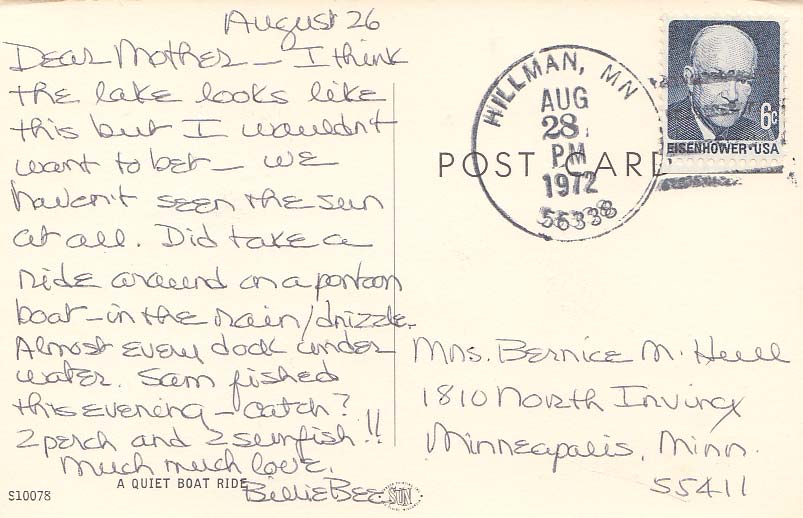 August 26
Dear Mother — I think
the lake looks like
this but I wouldn't
want to bet — we
haven't seen the sun
at all. Did take a
ride around on a pontoon
boat — in the rain/drizzle.
Almost every dock under
water. Sam fished
this evening — catch?
2 perch and 2 sunfish!!
Much much love,
Billie Bee
A QUIET BOAT RIDE
S10078
SUN
POST CARD
HILLMAN, MN
AUG
28
PM
1972
56338
6c
EISENHOWER·USA
Mrs. Bernice M. Hull
1810 North Irving
Minneapolis, Minn.
55411